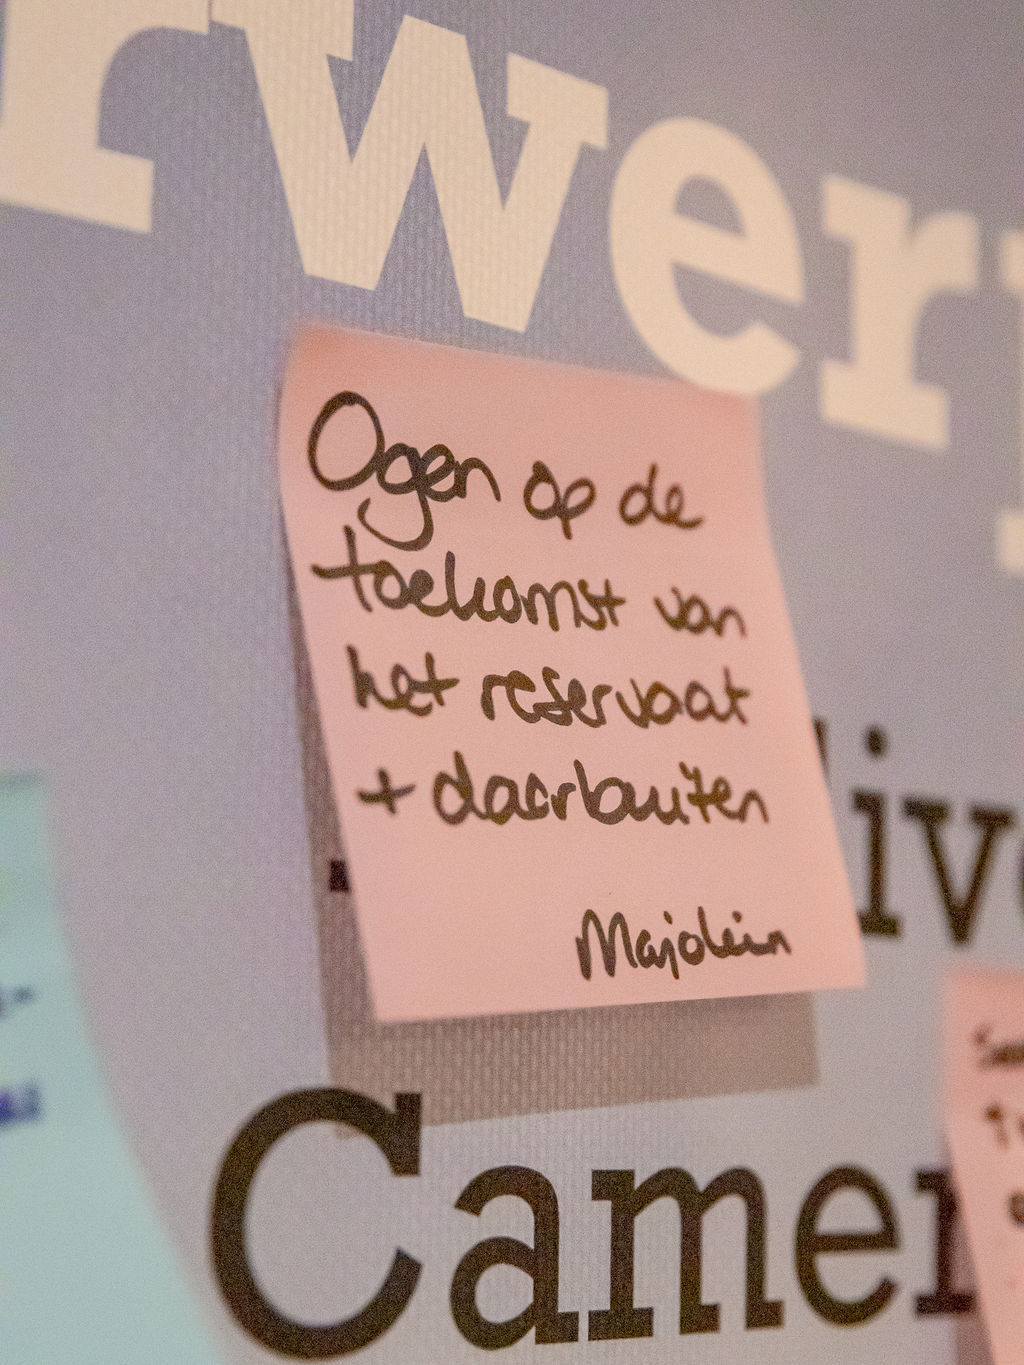 rwerp
Ogen op de
toekomst van
het reservaat
+ daarbuiten
Marjolein
live
Camer